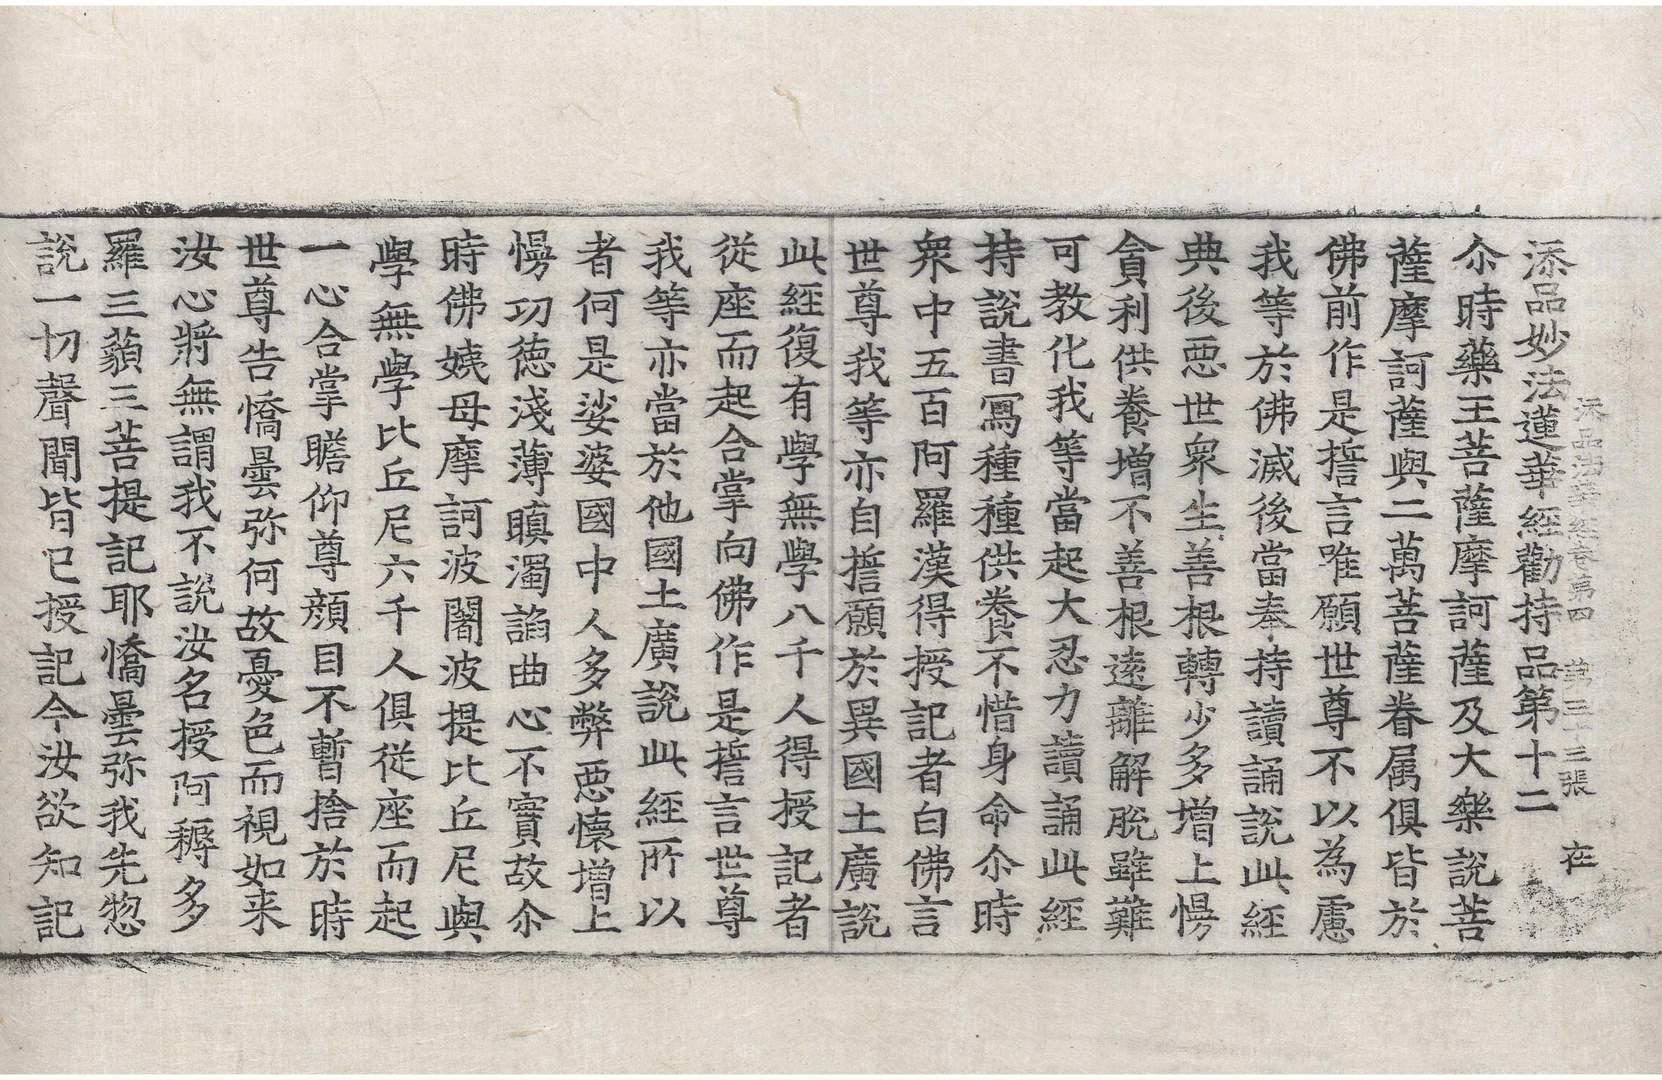 添品法華經卷第四 第三十三張 在
添品妙法蓮華經勸持品第十二
尒時藥王菩薩摩訶薩及大樂說菩
薩摩訶薩與二萬菩薩眷属俱皆於
佛前作是誓言唯願世尊不以為慮
我等於佛滅後當奉持讀誦說此經
典後惡世衆生善根轉少多增上慢
貪利供養增不善根遠離解脫雖難
可教化我等當起大忍力讀誦此經
持說書寫種種供養不惜身命尒時
衆中五百阿羅漢得授記者白佛言
世尊我等亦自誓願於異國土廣說
此經復有學無學八千人得授記者
從座而起合掌向佛作是誓言世尊
我等亦當於他國土廣說此經所以
者何是娑婆國中人多弊惡懷增上
慢功德淺薄瞋濁諂曲心不實故尒
時佛姨母摩訶波闍波提比丘尼與
學無學比丘尼六千人俱從座而起
一心合掌瞻仰尊顏目不暫捨於時
世尊告憍曇弥何故憂色而視如来
汝心將無謂我不說汝名授阿耨多
羅三藐三菩提記耶憍曇弥我先惣
說一切聲聞皆已授記今汝欲知記